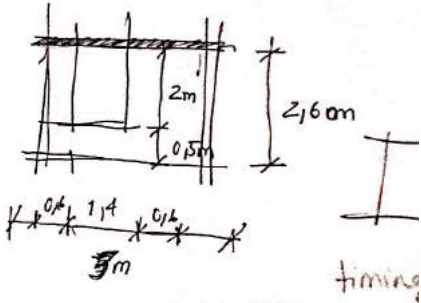 2m
0,5m
2,6 cm
0,6 1,4 0,6
m
timing